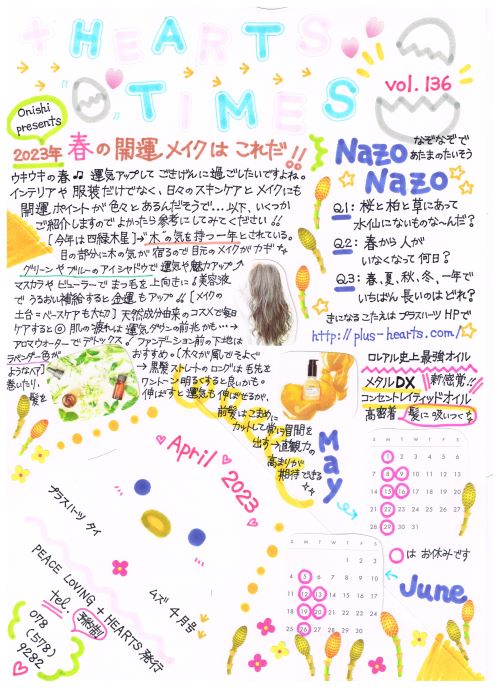 +HEARTS
TIMES
vol. 136
Onishi
presents
2023年 春の開運メイクはこれだ!!
ウキウキの春♫ 運気アップしてごきげんに過ごしたいですよね。
インテリアや服装だけでなく、日々のスキンケアとメイクにも
開運ポイントが色々とあるんだそうで...以下、いくつか
ご紹介しますのでよかったら参考にしてみてください!!
【今年は四緑木星】→"木"の気を持つ一年とされている。
目の部分に木の気が宿るので目元のメイクがカギな
グリーンやブルーのアイシャドウで運気や魅力アップ
マスカラやビューラーでまつ毛を上向きに♪美容液
でうるおい補給すると金運もアップ!!【メイクの
土台=ベースケアも大切】天然成分由来のコスメで毎日
ケアすると◎ 肌の疲れは運気ダウンの前兆かも…→
アロマウォーターでデトックス。ファンデーション前の下地は
ラベンダー色が
おすすめ。【木々が風でそよぐ
ようなヘア】
→黒髪ストレートのロングは毛先を
巻いたり、
ワントーン明るくすると良いかも。
髪を
伸ばすと運気も伸ばせるが、
前髪はこまめに
カットして常に眉間を
出す→直観力の
高まりが
期待できる
Nazo
Nazo
なぞなぞで
あたまのたいそう
Q1: 桜と柏と草にあって
水仙にないものな〜んだ?
Q2: 春から人が
いなくなって何日?
Q3: 春、夏、秋、冬、一年で
いちばん長いのはどれ?
きになるこたえはプラスハーツHPで
http://plus-hearts.com/
ロレアル史上最強オイル
メタルDX 新感覚!!
コンセントレイティッドオイル
高密着 髪に吸いつくな
May
S M T W T F S
1 2 3 4 5 6
7 8 9 10 11 12 13
14 15 16 17 18 19 20
21 22 23 24 25 26 27
28 29 30 31
○はお休みです
June
S M T W T F S
1 2 3
4 5 6 7 8 9 10
11 12 13 14 15 16 17
18 19 20 21 22 23 24
25 26 27 28 29 30
April 2023
プラスハーツ タイ
ムズ 4月号
PEACE LOVING + HEARTS 発行
tel. 予約制
078
(578)
9282